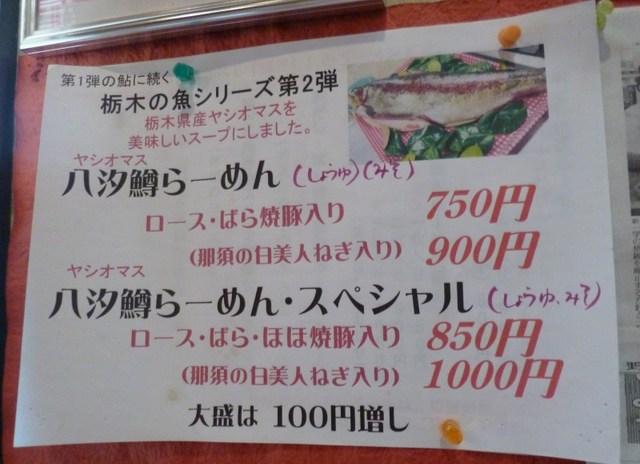 第1弾の鮎に続く
栃木の魚シリーズ第2弾
栃木県産ヤシオマスを
美味しいスープにしました。
ヤシオマス
八汐鱒らーめん (しょうゆ)(みそ)
ロース・ばら焼豚入り 750円
(那須の白美人ねぎ入り) 900円
ヤシオマス
八汐鱒らーめん・スペシャル (しょうゆ、みそ)
ロース・ばら・ほほ焼豚入り 850円
(那須の白美人ねぎ入り) 1000円
大盛は 100円増し